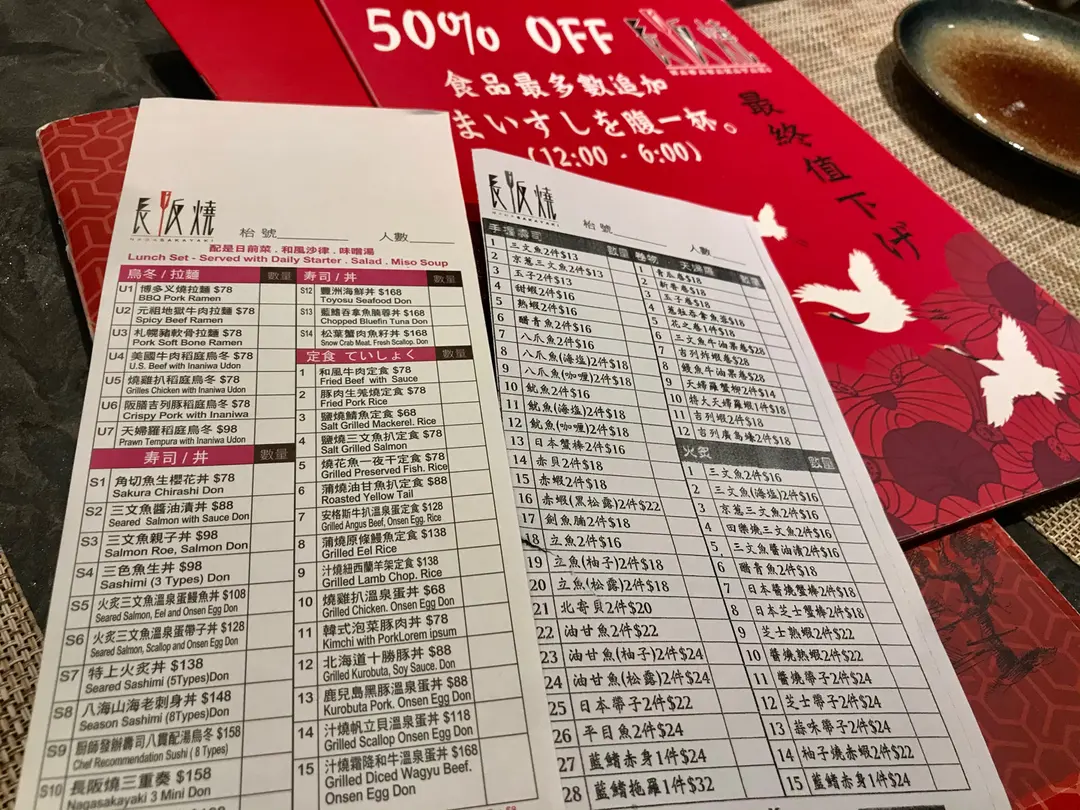 50% OFF
長阪燒
食品最多數追加
まいすしを腹一杯。
(12:00 - 6:00)
最終值下げ
長阪燒
NAGASAKAYAKI
枱號 人數
配是日前菜 . 和風沙律 . 味噌湯
Lunch Set - Served with Daily Starter . Salad . Miso Soup
烏冬 / 拉麵 數量
U1 博多义燒拉麵 $78
BBQ Pork Ramen
U2 元祖地獄牛肉拉麵 $78
Spicy Beef Ramen
U3 札幌豬軟骨拉麵 $78
Pork Soft Bone Ramen
U4 美國牛肉稻庭烏冬 $78
U.S. Beef with Inaniwa Udon
U5 燒雞扒稻庭烏冬 $78
Grilles Chicken with Inaniwa Udon
U6 阪膳吉列豚稻庭烏冬 $78
Crispy Pork with Inaniwa
U7 天婦羅稻庭烏冬 $98
Prawn Tempura with Inaniwa Udon
寿司 / 丼 數量
S1 角切魚生櫻花丼 $78
Sakura Chirashi Don
S2 三文魚醬油漬丼 $88
Seared Salmon with Sauce Don
S3 三文魚親子丼 $98
Salmon Roe, Salmon Don
S4 三色魚生丼 $98
Sashimi (3 Types) Don
S5 火炙三文魚溫泉蛋鰻魚丼 $108
Seared Salmon, Eel and Onsen Egg Don
S6 火炙三文魚溫泉蛋帶子丼 $128
Seared Salmon, Scallop and Onsen Egg Don
S7 特上火炙丼 $138
Seared Sashimi (5Types)Don
S8 八海山海老刺身丼 $148
Season Sashimi (8Types)Don
S9 廚師發辦壽司八貫配湯烏冬 $158
Chef Recommendation Sushi ( 8 Types)
S10 長阪燒三重奏 $158
Nagasakayaki 3 Mini Don
寿司 / 丼 數量
S12 豐洲海鮮丼 $168
Toyosu Seafood Don
S13 藍鰭吞拿魚腩蓉丼 $168
Chopped Bluefin Tuna Don
S14 松葉蟹肉魚籽丼 $168
Snow Crab Meat. Fresh Scallop. Don
定食 ていしょく 數量
1 和風牛肉定食 $78
Fried Beef with Sauce
2 豚肉生羗燒定食 $78
Fried Pork Rice
3 鹽燒鯖魚定食 $68
Salt Grilled Mackerel. Rice
4 鹽燒三文魚扒定食 $78
Salt Grilled Salmon
5 燒花魚一夜干定食 $78
Grilled Preserved Fish. Rice
6 蒲燒油甘魚扒定食 $88
Roasted Yellow Tail
7 安格斯牛扒溫泉蛋定食 $128
Grilled Angus Beef, Onsen Egg. Rice
8 蒲燒原條鰻魚定食 $138
Grilled Eel Rice
9 汁燒紐西蘭羊架定食 $138
Grilled Lamb Chop. Rice
10 燒雞扒溫泉蛋丼 $68
Grilled Chicken. Onsen Egg Don
11 韓式泡菜豚肉丼 $78
Kimchi with PorkLorem ipsum
12 北海道十勝豚丼 $88
Grilled Kurobuta, Soy Sauce. Don
13 鹿兒島黑豚溫泉蛋丼 $88
Kurobuta Pork. Onsen Egg Don
14 汁燒帆立貝溫泉蛋丼 $118
Grilled Scallop Onsen Egg Don
15 汁燒霜降和牛溫泉蛋丼 $168
Grilled Diced Wagyu Beef.
Onsen Egg Don
長阪燒
枱號 人數
手握壽司 數量
1 三文魚2件$13
2 京葱三文魚2件$13
3 玉子2件$13
4 甜蝦2件$16
5 熟蝦2件$16
6 醋青魚2件$16
7 八爪魚2件$16
8 八爪魚(海塩)2件$18
9 八爪魚(咖喱)2件$18
10 魷魚2件$16
11 魷魚(海塩)2件$18
12 魷魚(咖喱)2件$18
13 日本蟹棒2件$16
14 赤貝2件$18
15 赤蝦2件$18
16 赤蝦(黑松露)2件$22
17 劍魚腩2件$18
18 立魚2件$16
19 立魚(柚子)2件$18
20 立魚(松露)2件$18
21 北寄貝2件$20
22 油甘魚2件$22
23 油甘魚(柚子)2件$24
24 油甘魚(松露)2件$24
25 日本帶子2件$22
26 平目魚2件$24
27 藍鰭赤身1件$24
28 藍鰭拖羅1件$32
卷物 · 天婦羅 數量
1 青瓜卷$18
2 新香卷$18
3 玉子卷$18
4 葱吞拿魚蓉$18
5 花之卷1件$18
6 三文魚牛油果卷$28
7 吉列炸蝦卷$28
8 鰻魚牛油果卷$28
9 天婦羅蟹柳2件$14
10 特大天婦羅蝦1件$18
11 吉列蝦2件$18
12 吉列廣島蠔2件$18
火炙 數量
1 三文魚2件$16
2 三文魚(海塩)2件$16
3 京葱三文魚2件$16
4 田樂燒三文魚2件$16
5 三文魚醬油漬2件$16
6 醋青魚2件$18
7 日本醬燒蟹棒2件$18
8 日本芝士蟹棒2件$18
9 芝士熟蝦2件$22
10 醬燒熟蝦2件$22
11 醬燒帶子2件$24
12 芝士帶子2件$24
13 蒜味帶子2件$24
14 柚子燒赤蝦2件$22
15 藍鰭赤身1件$24